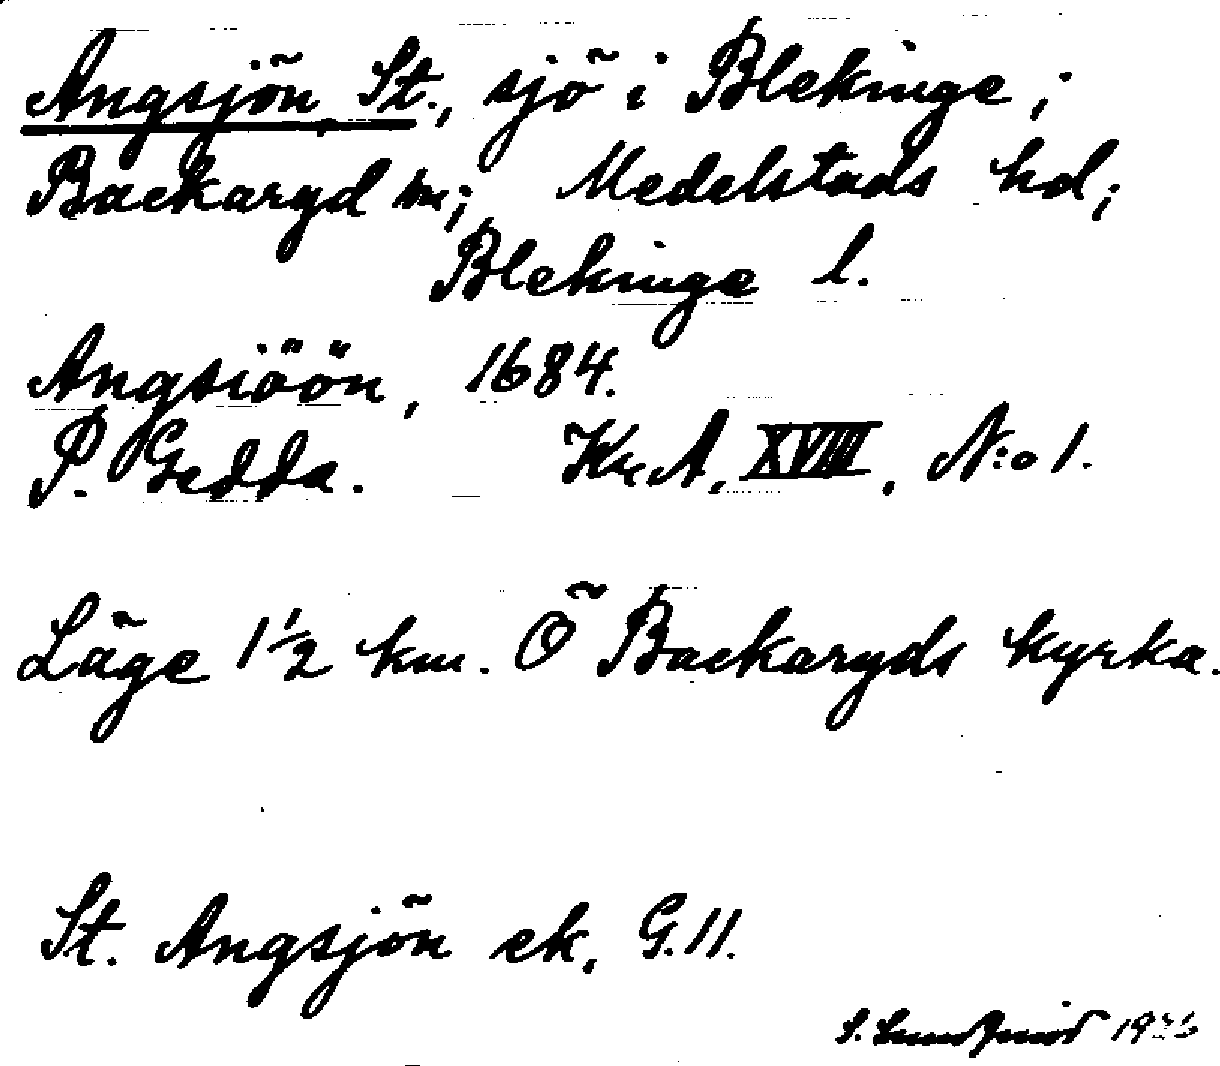 Angsjön, St., sjö i Blekinge;
Backaryd sn; Medelstads hd;
Blekinge l.
Angsiöön, 1684.
P. Gedda. Kr.A, XVIII, N:o 1.
Läge 1 1/2 km. Ö Backaryds kyrka.
St. Angsjön ek, G.11.
S.